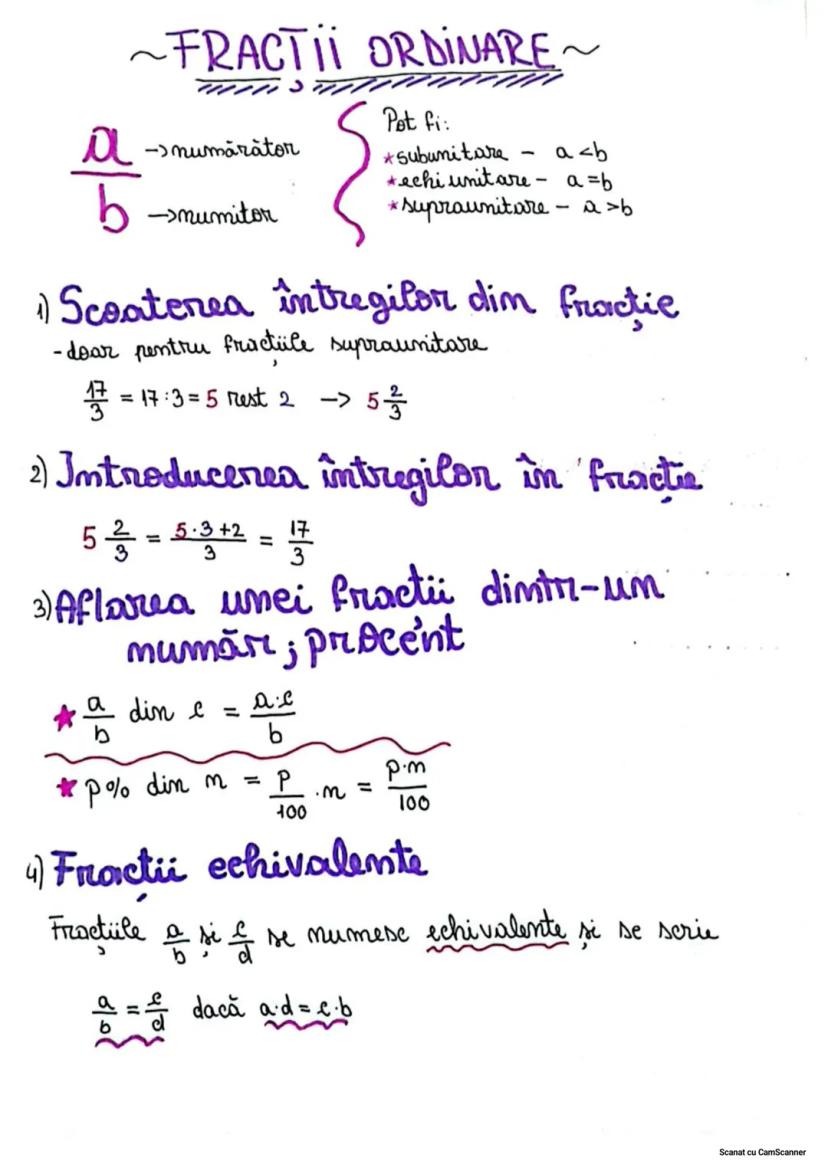 ~FRACȚII ORDINARE~
a →numărător
b →numitor
Pot fi:
*subunitare - a<b
*echiunitare - a=b
*supraunitare - a>b
1) Scoaterea întregilor din fracție
-doar pentru fracțiile supraunitare
17/3 = 17:3=5 rest 2 -> 5 2/3
2) Introducerea întregilor în fracție
5 2/3 = 5·3+2/3 = 17/3
3) Aflarea unei fractii dintr-un
număr; procent
★ a/b din c = a·c/b
★ p% din n = p/100 ·n = p·n/100
4) Fracții echivalente
Fracțiile a/b și c/d se numesc echivalente și se scrie
a/b = c/d dacă a·d=c·b
Scanat cu CamScanner